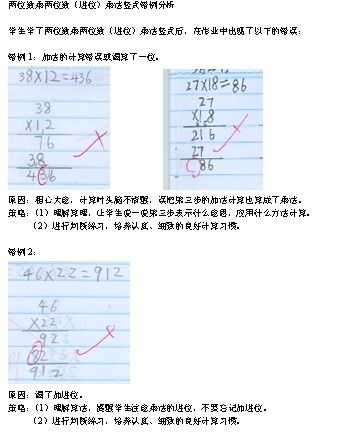 两位数乘两位数（进位）乘法竖式错例分析
学生学了两位数乘两位数（进位）乘法竖式后，在作业中出现了以下的错误：
错例1：加法的计算错误或漏算了一位。
38×12=436
38
×1,2
76
38
436
27×18=86
27
×1,8
216
27
86
原因：粗心大意，计算时头脑不清醒，误把第三步的加法计算也算成了乘法。
策略：（1）理解算理，让学生说一说第三步表示什么意思，应用什么方法计算。
（2）进行判断练习，培养认真、细致的良好计算习惯。
错例2：
46×22=912
46
×22
92
82
912
原因：漏了加进位。
策略：（1）理解算法，提醒学生注意乘法的进位，不要忘记加进位。
（2）进行判断练习，培养认真、细致的良好计算习惯。